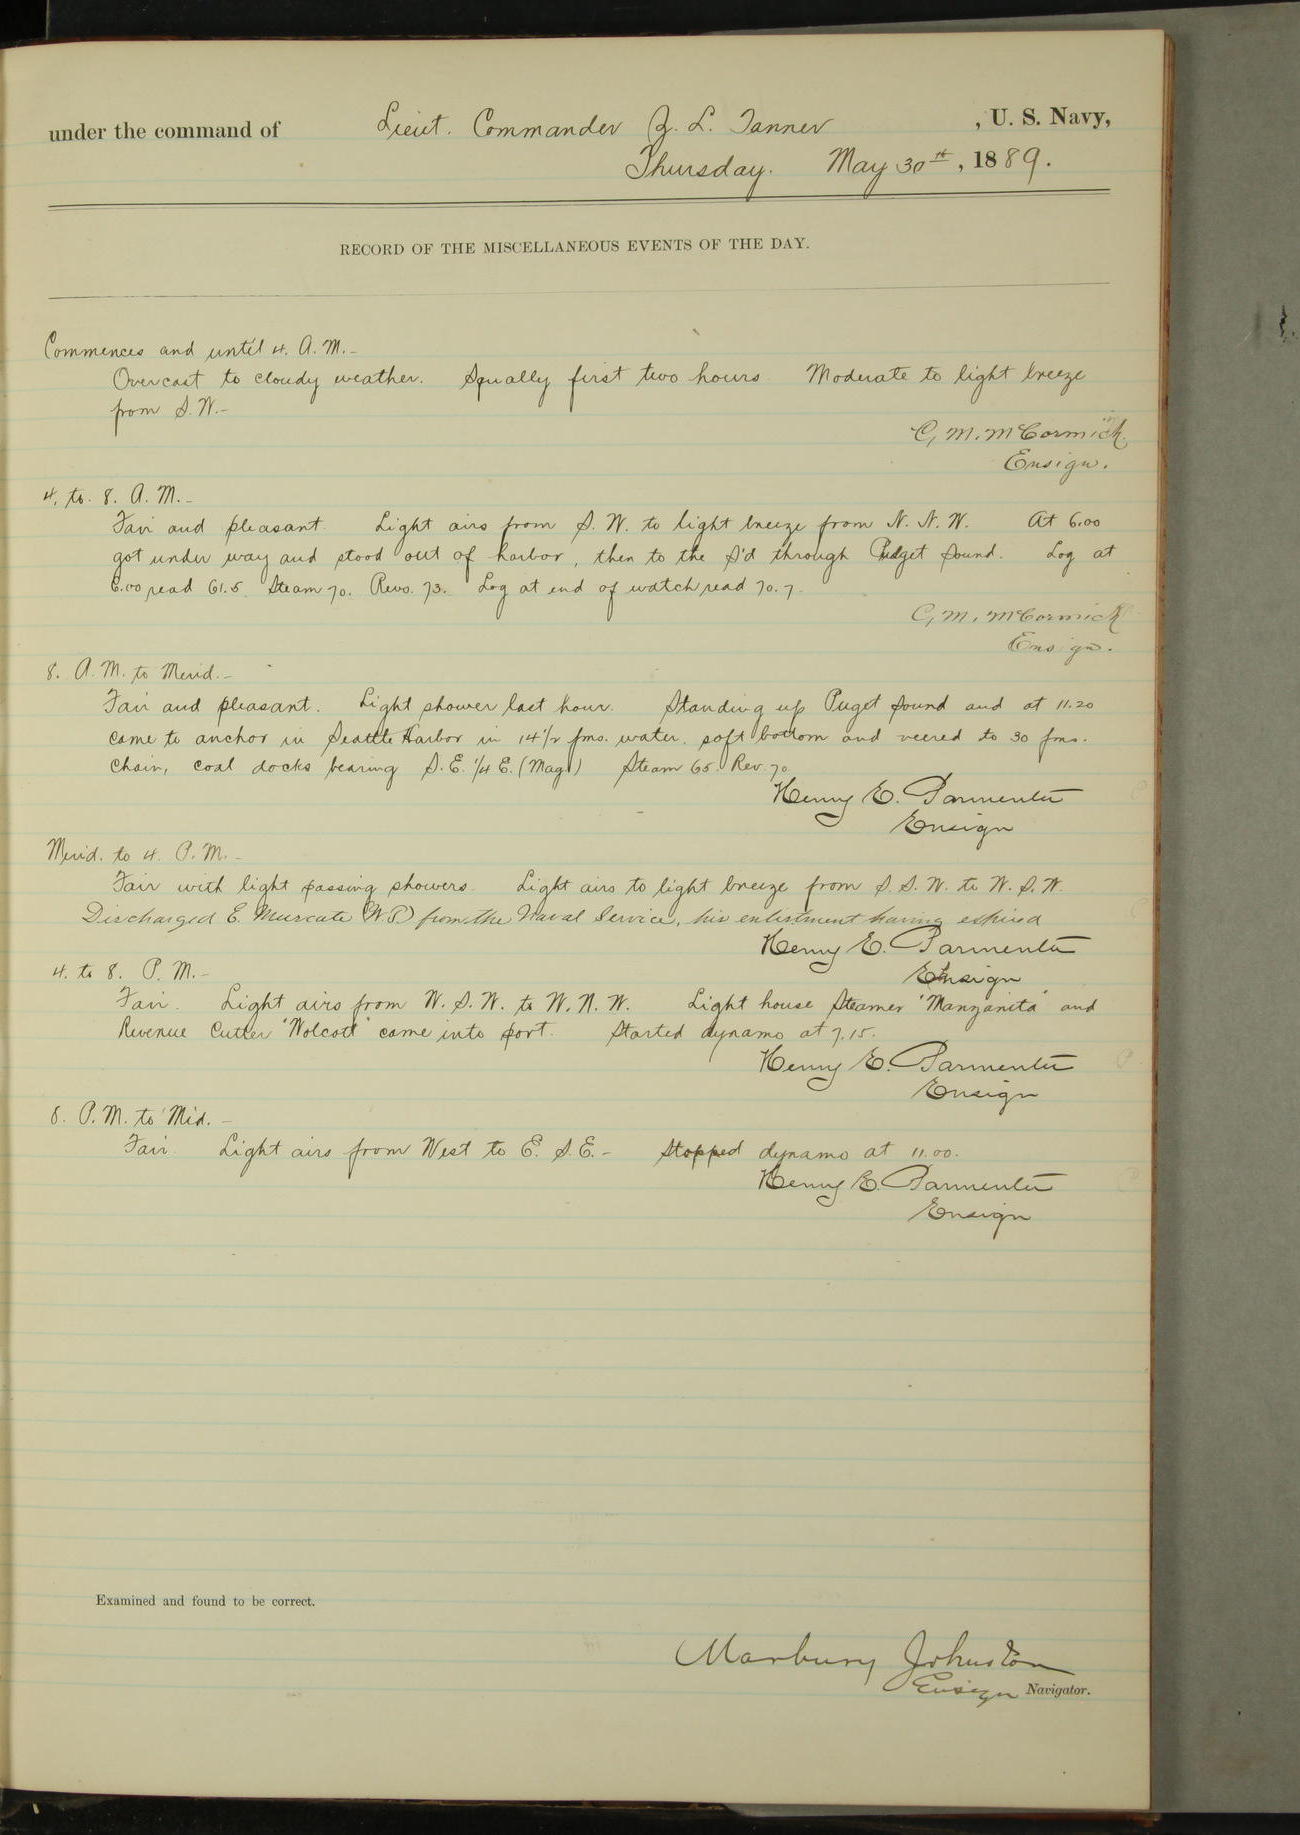 under the command of Lieut. Commander Z. L. Tanner, U. S. Navy,
Thursday. May 30th, 1889.
RECORD OF THE MISCELLANEOUS EVENTS OF THE DAY.
Commences and until 4. A. M.–
Overcast to cloudy weather. Squally first two hours. Moderate to light breeze
from S. W.–
C. M. McCormick.
Ensign.
4. to. 8. A. M.–
Fair and pleasant. Light airs from S. W. to light breeze from N. N. W. At 6.00
got under way and stood out of harbor, then to the S'd through Puget Sound. Log at
6.00 read 61.5. Steam 70. Revs. 73. Log at end of watch read 70.7.
C. M. McCormick
Ensign.
8. A. M. to Merid.–
Fair and pleasant. Light shower last hour. Standing up Puget Sound and at 11.20
came to anchor in Seattle Harbor in 14 1/2 fms. water. soft bottom and veered to 30 fms.
chain, coal docks bearing S. E. 1/4 E. (Mag.) Steam 65. Rev. 70
Henry E. Parmenter
Ensign
Merid. to 4. P. M.–
Fair with light passing showers. Light airs to light breeze from S. S. W. to W. S. W.
Discharged E. (W.P.) from the Naval Service, his enlistment having expired
Henry E. Parmenter
Ensign
4. to 8. P. M.–
Fair. Light airs from W. S. W. to W. N. W. Light house Steamer "Manzanita" and
Revenue Cutter "Wolcott" came into port. Started dynamo at 7.15.
Henry E. Parmenter
Ensign
8. P. M. to Mid.–
Fair. Light airs from West to E. S. E.– Stopped dynamo at 11.00.
Henry E. Parmenter
Ensign
Examined and found to be correct.
Marbury Johnston
Ensign Navigator.